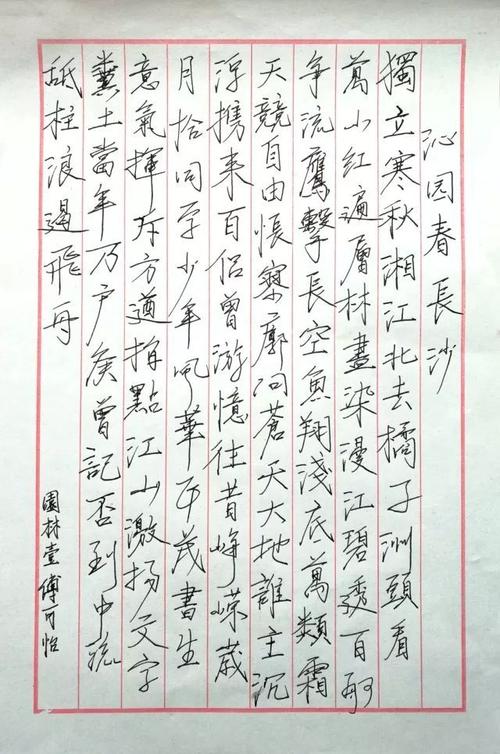 沁园春長沙
獨立寒秋湘江北去橘子洲頭看
萬山紅遍層林盡染漫江碧透百舸
争流鷹擊長空魚翔淺底萬類霜
天競自由悵寥廓问蒼天大地誰主沉
浮携来百侣曾游憶往昔峥嵘歲
月拾同学少年风華正茂書生
意氣揮斥方遒指點江山激扬文字
糞土當年万户侯曾記否到中流
舐柱浪遏飛舟
園林壹傅可怡